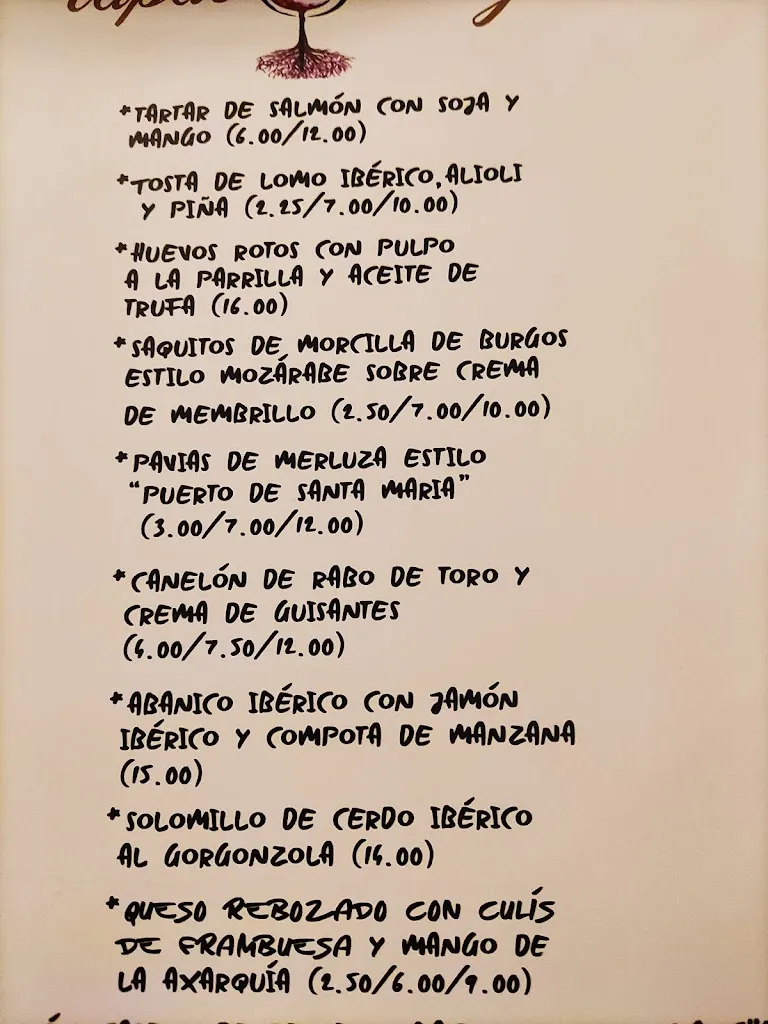 *TARTAR DE SALMÓN CON SOJA Y
MANGO (6.00/12.00)
*TOSTA DE LOMO IBÉRICO, ALIOLI
Y PIÑA (2.25/7.00/10.00)
*HUEVOS ROTOS CON PULPO
A LA PARRILLA Y ACEITE DE
TRUFA (16.00)
*SAQUITOS DE MORCILLA DE BURGOS
ESTILO MOZÁRABE SOBRE CREMA
DE MEMBRILLO (2.50/7.00/10.00)
*PAVIAS DE MERLUZA ESTILO
"PUERTO DE SANTA MARIA"
(3.00/7.00/12.00)
*CANELÓN DE RABO DE TORO Y
CREMA DE GUISANTES
(4.00/7.50/12.00)
*ABANICO IBÉRICO CON JAMÓN
IBÉRICO Y COMPOTA DE MANZANA
(15.00)
*SOLOMILLO DE CERDO IBÉRICO
AL GORGONZOLA (14.00)
*QUESO REBOZADO CON CULÍS
DE FRAMBUESA Y MANGO DE
LA AXARQUÍA (2.50/6.00/9.00)